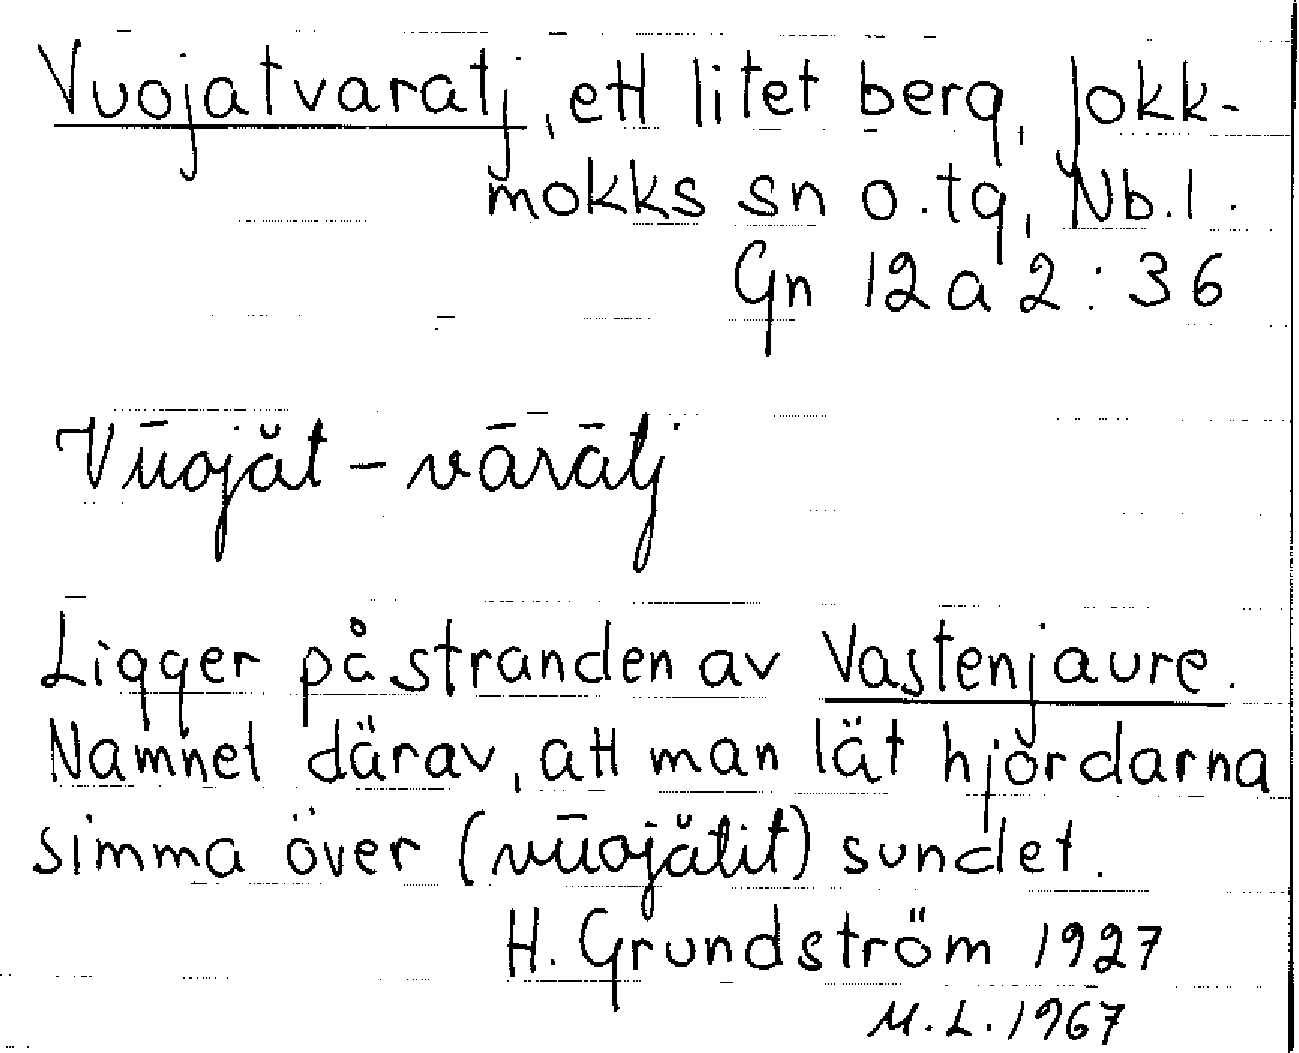 Vuojatvaratj, ett litet berg, Jokk-
mokks sn o.tg, Nb.l.
Gn 12 a 2:36
Vūojăt-vārātj
Ligger på stranden av Vastenjaure.
Namnet därav, att man lät hjordarna
simma över (vūojătit) sundet.
H. Grundström 1927
M.L. 1967